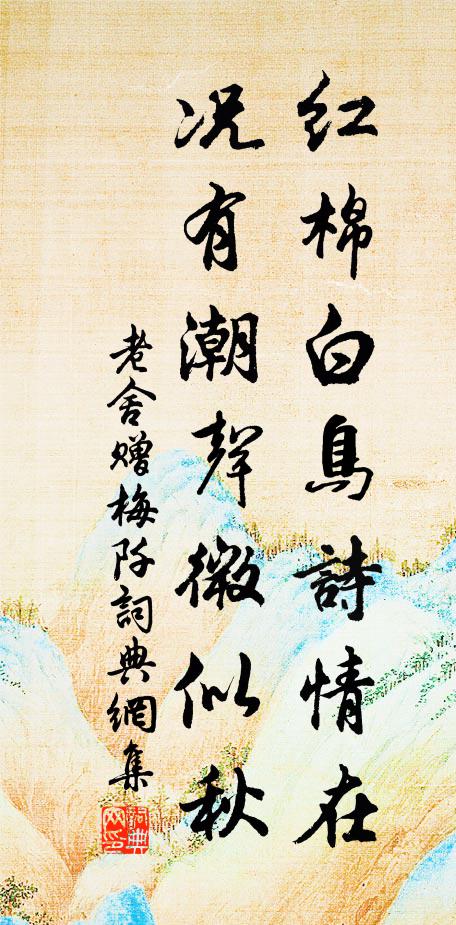 红棉白鳥詩情在
况有潮聲微似秋
老舍赠梅阡詞典網集
詞典